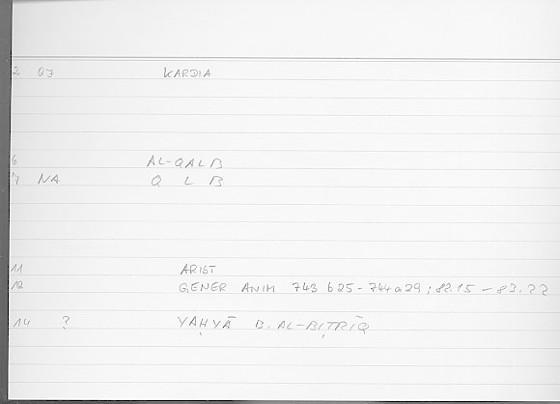 2 07 KARDIA
6 AL-QALB
7 NA Q L B
11 ARIST
12 GENER ANIM 743 b25-744a29; 82.15-83.22
14 ? YAḤYĀ B. AL-BIṬRĪQ